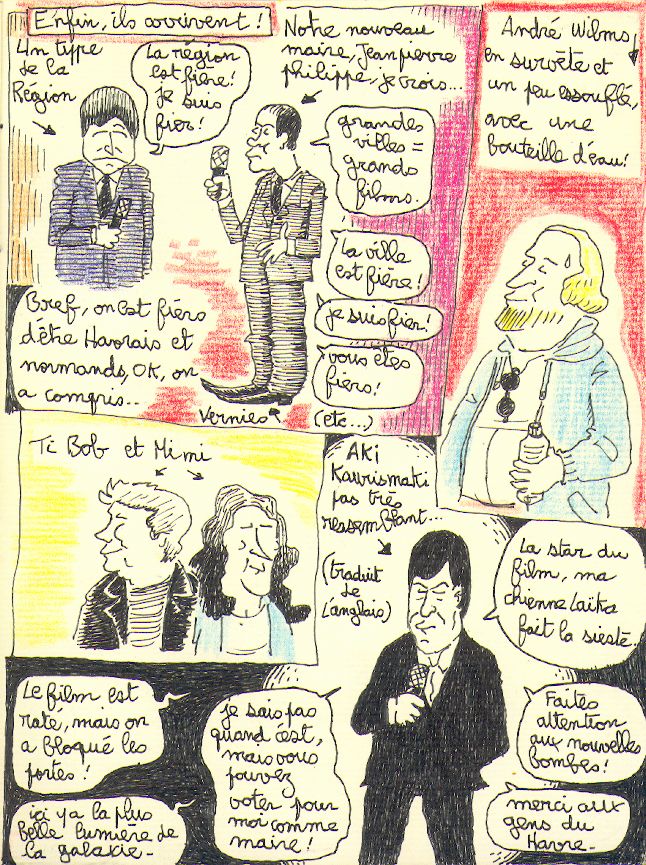 Enfin, ils arrivent !
Un type
de la
Région
La région
est fière !
Je suis
fier !
Notre nouveau
maire, Jean pierre
philippe, je crois...
grandes
villes =
grands
films.
La ville
est fière !
Je suis fier !
vous êtes
fiers !
(etc...)
Bref, on est fiers
d'être Havrais et
normands, OK, on
a compris..
Vernies
André Wilms,
en survête et
un peu essouflé,
avec une
bouteille d'eau !
Ti Bob et Mimi
Aki
Kaurismaki
pas très
ressemblant...
(traduit
de
l'anglais)
La star du
film, ma
chienne Laika
fait la sieste..
Le film est
raté, mais on
a bloqué les
portes !
ici y a la plus
belle lumière de
la galaxie_
Je sais pas
quand c'est,
mais vous
pouvez
voter pour
moi comme
maire !
Faites
attention
aux nouvelles
bombes !
merci aux
gens du
Havre_